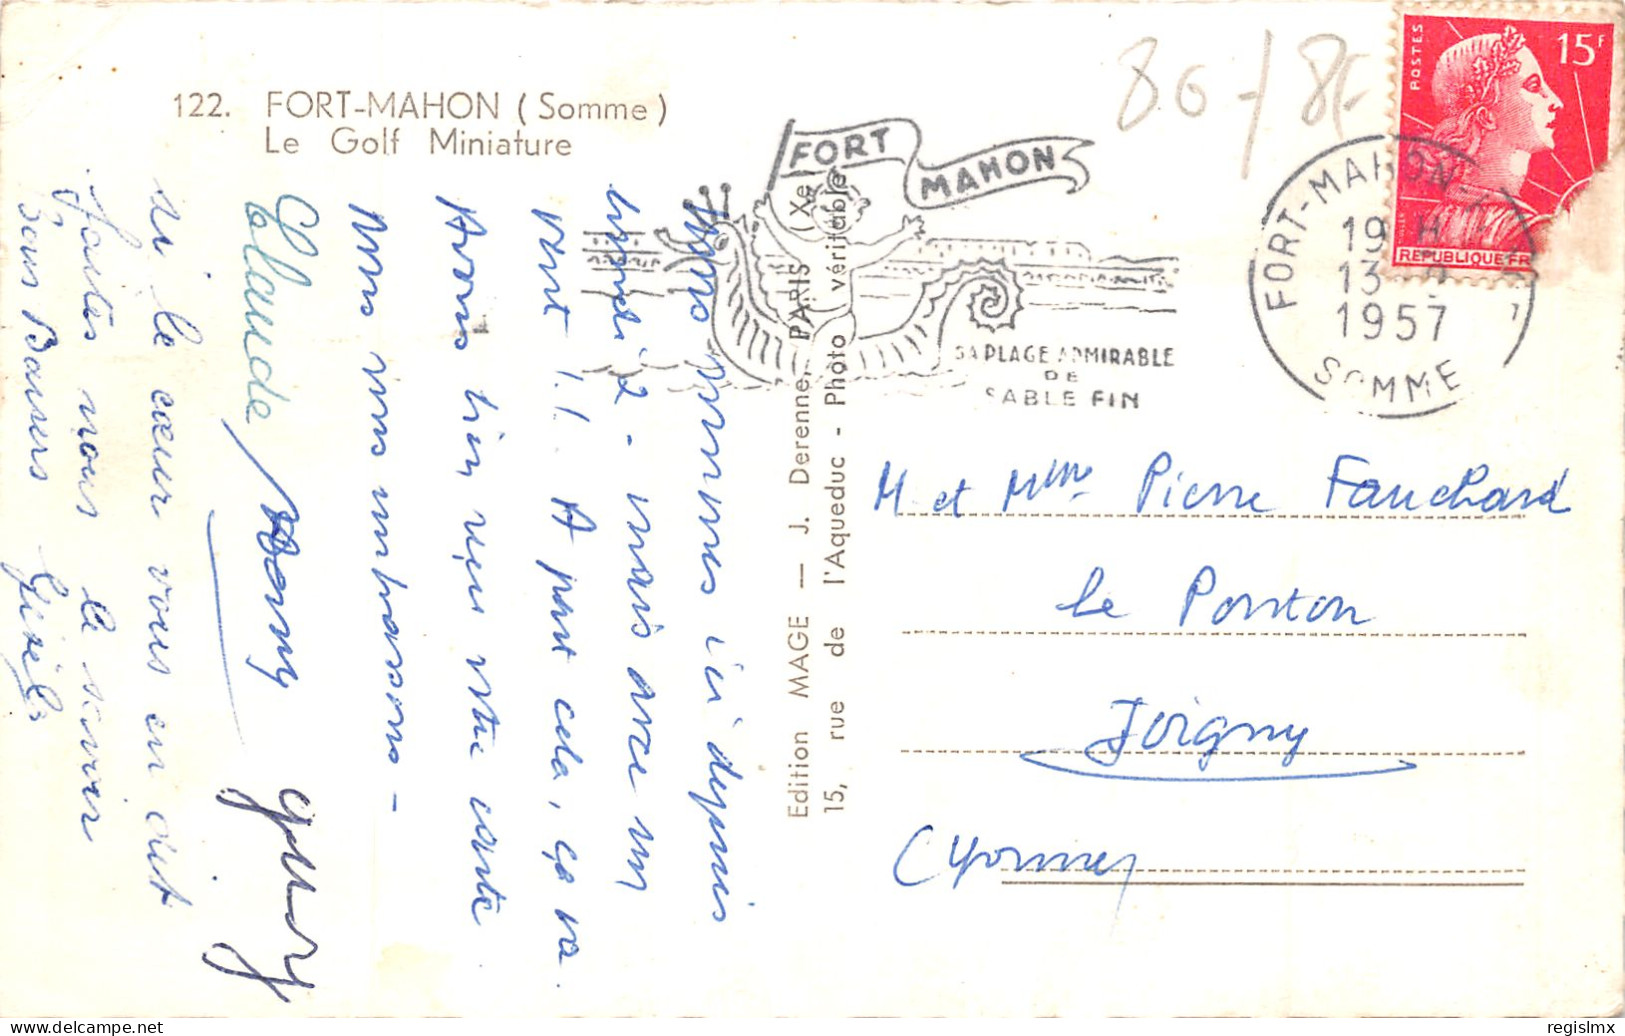 122. FORT-MAHON (Somme)
Le Golf Miniature
80-/8
FORT
MAHON
SA PLAGE ADMIRABLE
DE
SABLE FIN
FORT-MAHON
19 H
13
1957
SOMME
POSTES
15F
REPUBLIQUE FR
Edition MAGE — J. Derenne, PARIS (Xe
15, rue de l'Aqueduc - Photo véritable
Nous sommes ici depuis
lundi 2 - mais avec un
vent !.! A part cela, ça va.
Avons bien reçu votre carte
Nous vous embrassons -
Claude
si le cœur vous en dit
faites nous le savoir
Bons Baisers Gisèle
M et Mme Pierre Fauchard
le Ponton
Joigny
(Yonne)
delcampe.net
regislmx